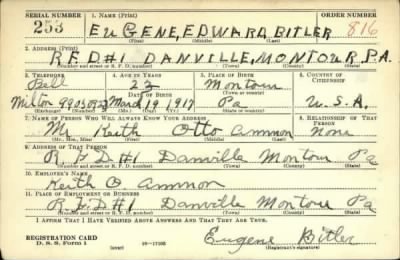 SERIAL NUMBER 1. NAME (Print) ORDER NUMBER
253 EUGENE, EDWARD, BITLER 816
(First) (Middle) (Last)
2. ADDRESS (Print)
R.F.D#1 DANVILLE, MONTOUR, P.A.
(Number and street or R. F. D. number) (Town) (County) (State)
3. TELEPHONE 4. AGE IN YEARS 5. PLACE OF BIRTH 6. COUNTRY OF CITIZENSHIP
Bell 23 Montour
DATE OF BIRTH (Town or county)
Milton March 19 1917 Pa U.S.A.
(Exchange) (Number) (Mo.) (Day) (Yr.) (State or country)
7. NAME OF PERSON WHO WILL ALWAYS KNOW YOUR ADDRESS 8. RELATIONSHIP OF THAT PERSON
Mr Keith Otto Ammon None
(Mr., Mrs., Miss) (First) (Middle) (Last)
9. ADDRESS OF THAT PERSON
R.F.D#1 Danville Montour Pa
(Number and street or R. F. D. number) (Town) (County) (State)
10. EMPLOYER'S NAME
Keith O. Ammon
11. PLACE OF EMPLOYMENT OR BUSINESS
R.F.D#1 Danville Montour Pa
(Number and street or R. F. D. number) (Town) (County) (State)
I AFFIRM THAT I HAVE VERIFIED ABOVE ANSWERS AND THAT THEY ARE TRUE.
REGISTRATION CARD
D. S. S. Form 1 (over) 16—17105 Eugene Bitler
(Registrant's signature)